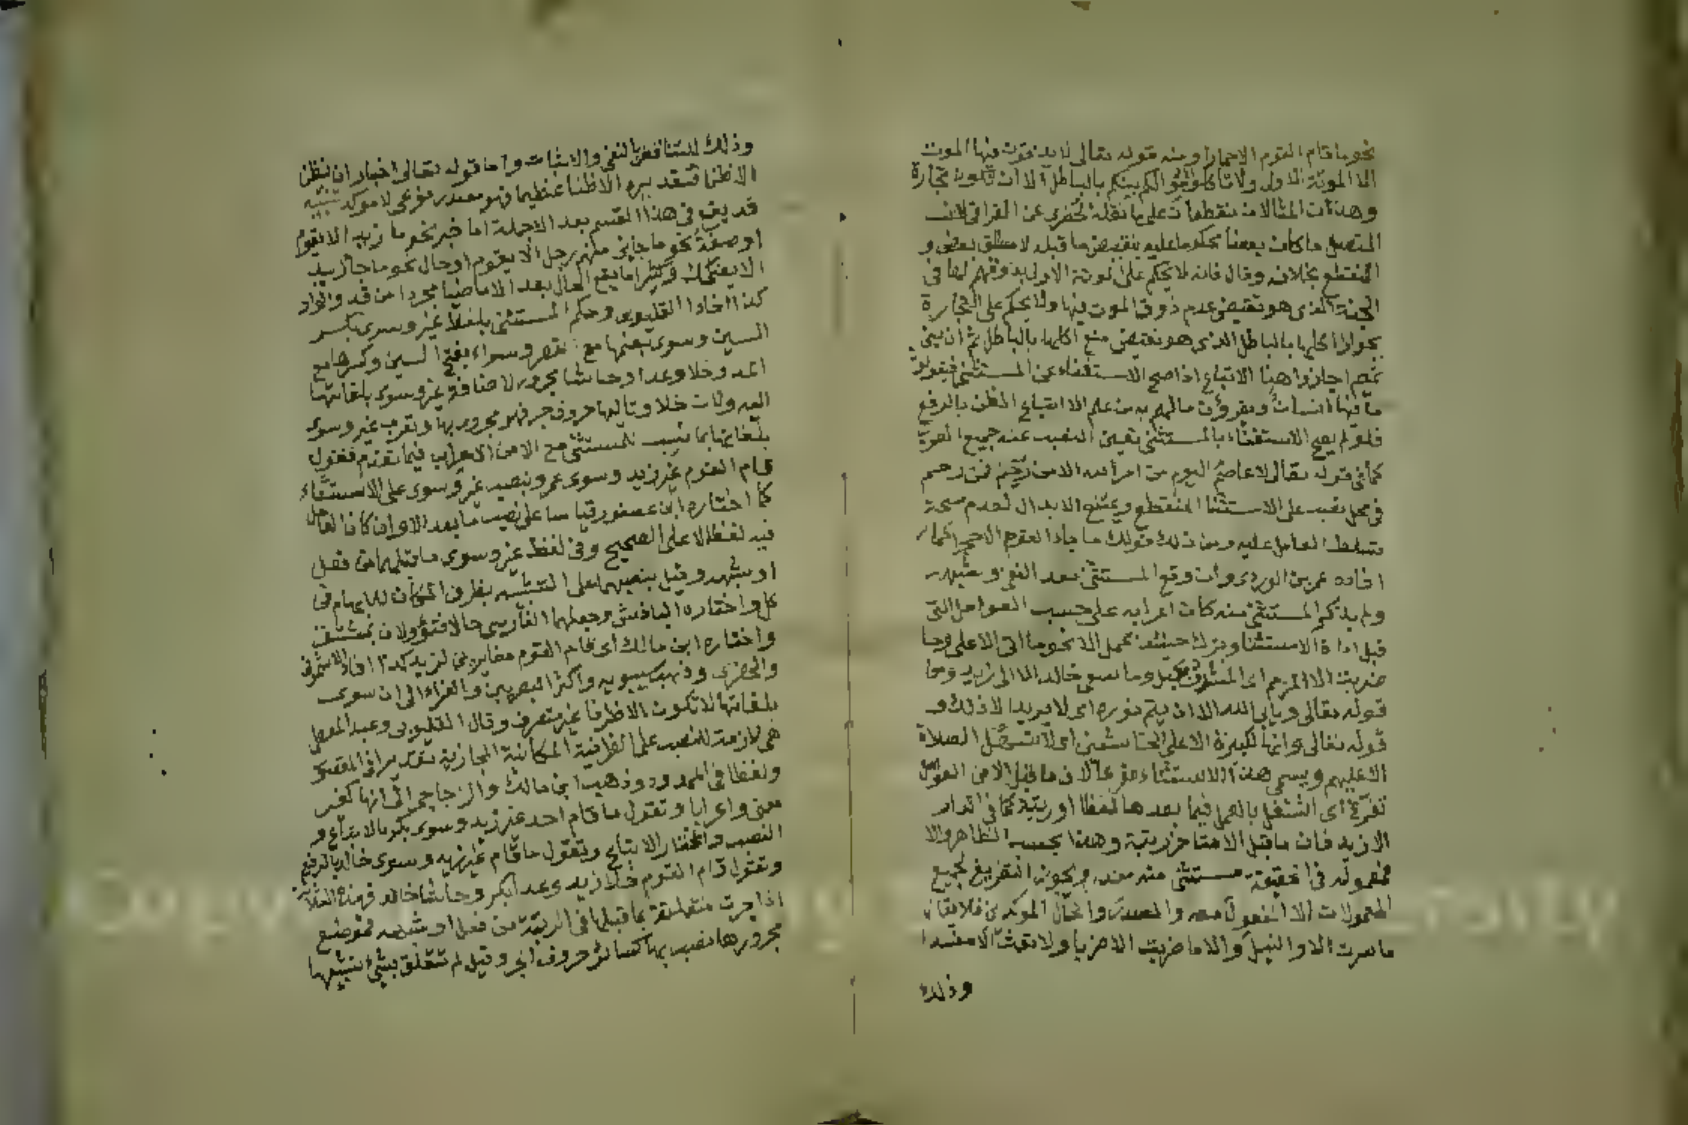 نحو ما قام القوم الاحمارا ومنه قوله تعالى لا يذوقون فيها الموت
الا الموتة الاولى ولا تاكلوا اموالكم بينكم بالباطل الا ان تكون تجارة
وهذان المثالان منقطعان على ما نقله عن القرافي لان
المتصل ما كان بعضا محكوما عليه بنقيض ما قبله لا مطلق بعض و
المنقطع بخلافه وقال فانه لا يحكم على الموتة الاولى بذوقهم لها في
الجنة الذي هو نقيض عدم ذوق الموت فيها ولا يحكم على التجارة
بجواز اكلها بالباطل الذي هو نقيض منع اكلها بالباطل ثم ان بني
تميم اجازوا هنا الاتباع اذا صح الاستغناء عن المستثنى فيقولون
ما فيها انسان ويقرؤن ما لهم به من علم الا اتباع الظن بالرفع
فلو لم يصح الاستغناء بالمستثنى تعين النصب عند جميع العرب
كما في قوله تعالى لا عاصم اليوم من امر الله الا من رحم فمن رحم
في محل نصب على الاستثنا المنقطع ويمتنع الابدال لعدم صحة
تسلط العامل عليه ومن ذلك قولك ما جاز القوم الا حمار
افاده عمر بن الوردي وان وقع المستثنى بعد النفي وشبهه
ولم يذكر المستثنى منه كان اعرابه على حسب العوامل التي
قبل اداة الاستثنا وترك حينئذ عمل الا نحو ما اتى الا علي وما
ضربت الا وما سعى خالد الا الى زيد ومنا
قوله تعالى ويابى الله الا ان يتم نوره اي لا يريد الا ذلك و
قوله تعالى وانها لكبيرة الا على الخاشعين اي لا تسهل الصلاة
الا عليهم ويسمى هذا الاستثناء مفرغا لان ما قبل الا من العوامل
تفرغ اي اشتغل بالعمل فيما بعدها لفظا او رتبة كما في الدار
الا زيد فان ما قبل الا متاخر رتبة وهذا بحسب الظاهر والا
فمعموله في الحقيقة مستثنى منه ويجوز التفريغ لجميع
المعمولات الا المفعول معه والمصدر والحال الموكدين فلا يقال
ما سرت الا والنيل والا ما ضربت الا ضربا ولا تعث الا مفسدا
وذلك
وذلك للتناقض بالنفي والاثبات واما قوله تعالى اخبارا ان نظن
الا ظنا فتقديره الا ظنا عظيما فهو مصدر نوعي لا موكد تنبيه
قد يقع في هذا القسم بعد الا جملة اما خبر نحو ما زيد الا يقوم
او صفة نحو ما جانى منهم رجل الا يقوم او حال نحو ما جا زيد
الا يضحك وكثيرا ما يقع الحال بعد الا ماضيا مجردا من قد والواو
كذا افادا القليوبي وحكم المستثنى بلفظ غير وسوى بكسر
السين وسوى بضمها مع القصر وسواء بفتح السين وكسرها مع
المد وخلا وعدا وحاشا مجرور لاضافة غير وسوى بلغاتها
اليه وكان خلا وتاليها حروف جر فهو مجرور بها وتعرب غير وسوى
بلغاتها بما نسب للمستثنى مع الا من الاعراب فيما تقدم فتقول
قام القوم غير زيد وسوى عمرو بنصب غير وسوى على الاستثناء
كما اختاره ابن عصفور قياسا على نصب ما بعد الا وان كان العامل
فيه لفظ الا على الصحيح وفي لفظ غير وسوى ما قبلهما من فعل
او شبهه وقيل بنصبهما على التشبيه بظرف المكان للابهام في
كل واختاره الباذش وجعلهما الفارسي حالا فتؤولان بمشتق
واختاره ابن مالك اي قام القوم مغايرين لزيد كذا افاد الاشمونى
والخضري وذهب سيبويه واكثر البصريين والفراء الى ان سوى
بلغاتها لا تكون الا ظرفا غير متصرف وقال القليوبي وعبد المعطي
هي لازمة للنصب على الظرفية المكانية المجازية تقديرا في المقصور
ولفظا في الممدود وذهب ابن مالك والزجاجي الى انها كغير
معنى واعرابا وتقول ما قام احد غير زيد وسوى بكر بالاتباع و
النصب والمختار الاتباع وتقول ما قام غير زيد وسوى خالد بالرفع
وتقول قام القوم خلا زيد وعدا بكر وحاشا خالد فهذه الثلاثة
اذا جرت متعلقة بما قبلها في الرتبة من فعل او شبهه فموضع
مجرورها نصب بها كسائر حروف الجر وقيل لم تتعلق بشئ تشبيها